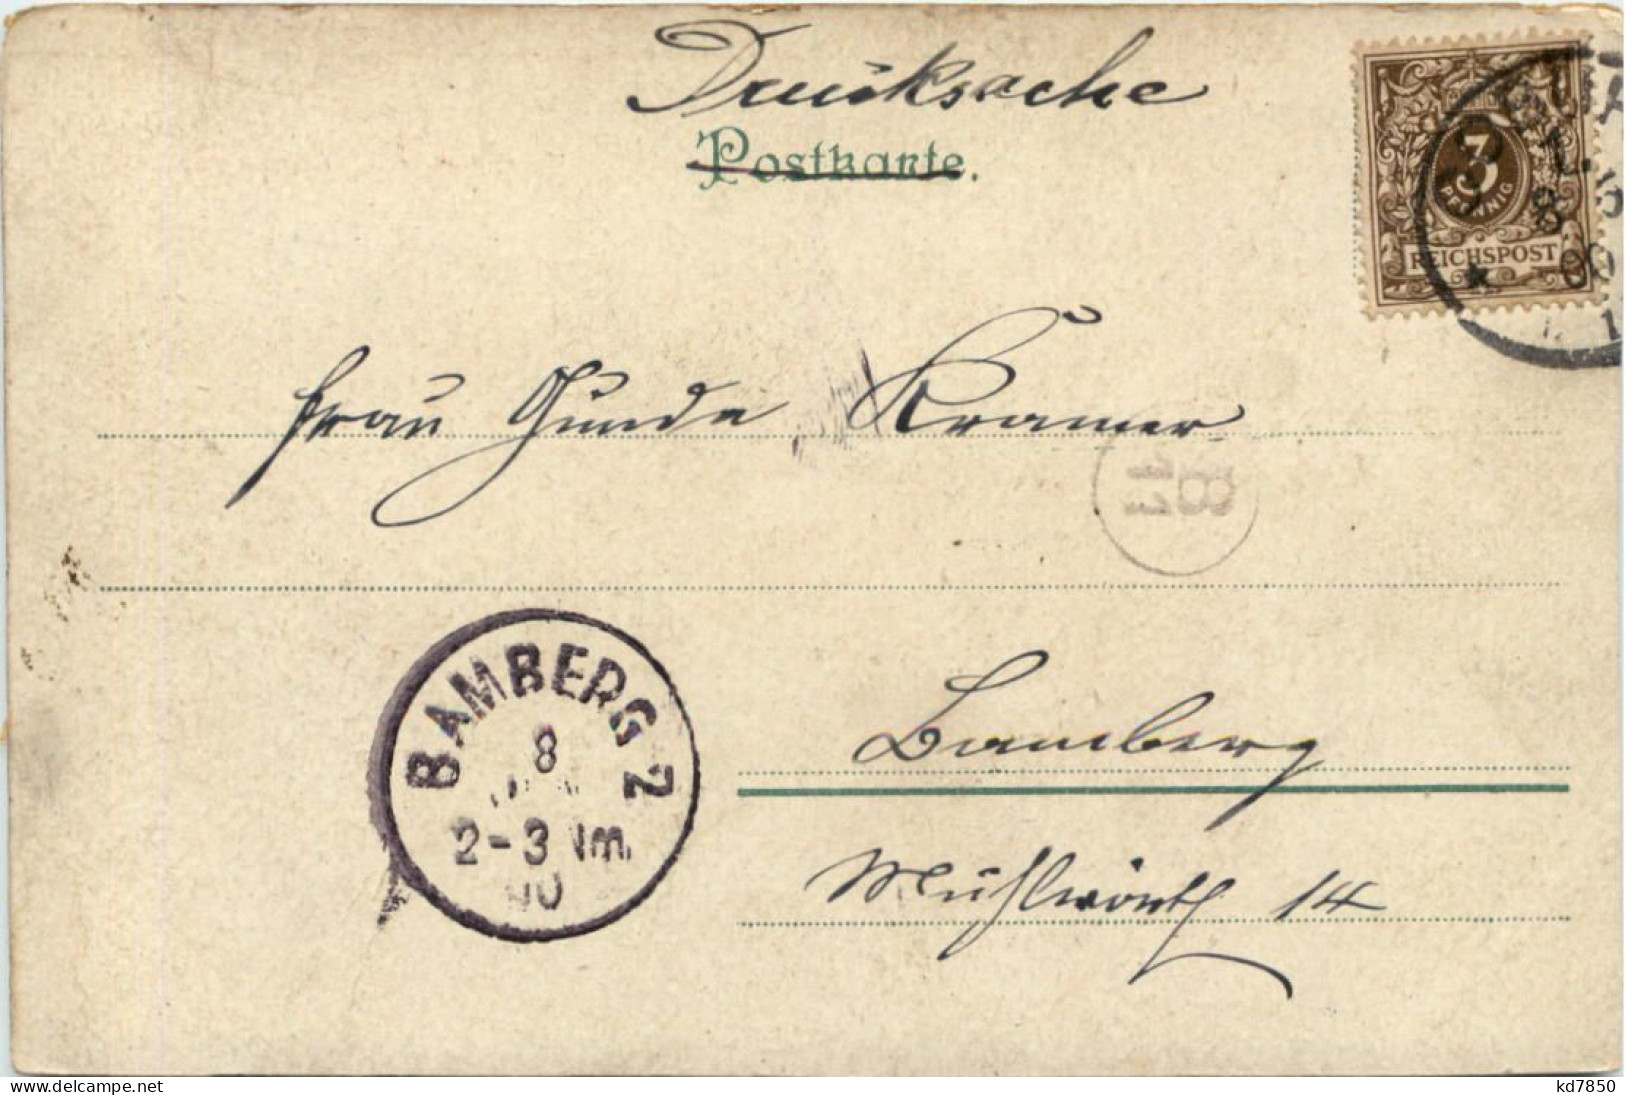 Drucksache
Postkarte.
3
PFENNIG
REICHSPOST
8
00
Frau Gunda Kramer
BAMBERG 2
8
2-3 Nm.
00
Bamberg
Mühlwörth 14
www.delcampe.net
kd7850